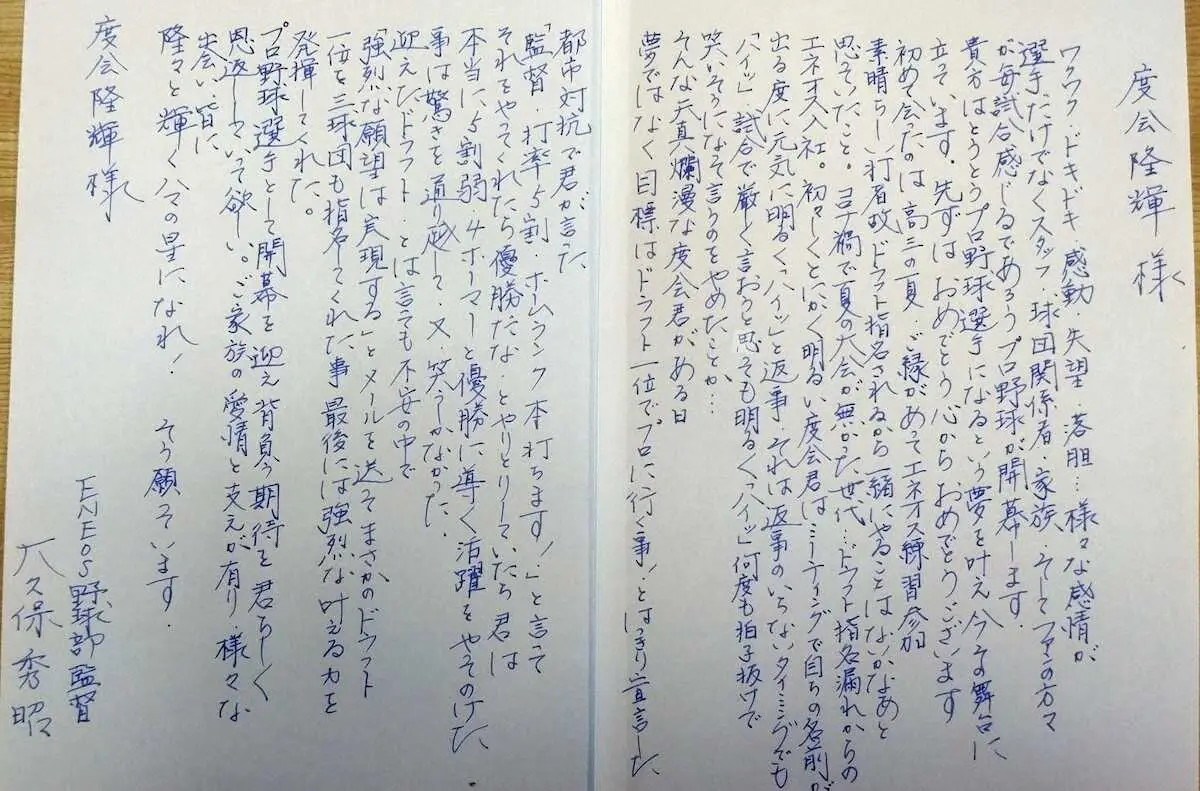 度会隆輝様
ワクワク・ドキドキ 感動・失望・落胆…様々な感情が
選手だけでなくスタッフ・球団関係者・家族 そしてファンの方々
が毎試合感じるであろうプロ野球が開幕します。
貴方はとうとうプロ野球選手になるという夢を叶え今その舞台に
立っています。先ずはおめでとう心からおめでとうございます
初めて会たのは高三の夏 ご縁があってエネオス練習参加
素晴らしい打者故ドラフト指名されるから一緒にやることはないかなあと
思っていたこと。コロナ禍で夏の大会が無かった世代…ドラフト指名漏れからの
エネオス入社。初々しくとにかく明るい度会君は…ミーティングで自らの名前が
出る度に元気に明るく「ハイッ」と返事・それは返事のいらないタイミングでも
「ハイッ」・試合で厳しく言おうと思っても明るく「ハイッ」何度も拍子抜けで
笑いそうになって言うのをやめたことか…
そんな天真爛漫な度会君がある日
夢ではなく目標はドラフト一位でプロに行く事！とはっきり宣言した
都市対抗で君が言った
「監督・打率5割・ホームラン5本打ちます！」と言って
それをやってくれたら優勝だな とやりとりしていたら君は
本当に5割弱・4ホーマーと優勝に導く活躍をやってのけた
事は驚きを通り越して・又・笑うしかなかった。
迎えたドラフト・とは言っても不安の中で
「強烈な願望は実現する」とメールを送ってまさかのドラフト
一位を三球団も指名してくれた事 最後には強烈な叶える力を
発揮してくれた。
プロ野球選手として開幕を迎え背負う期待を君らしく
恩返ししていって欲しい。ご家族の愛情と支えが有り・様々な
出会い皆に
隆々と輝くハマの星になれ！ そう願っています。
ENEOS野球部監督
大久保秀昭
度会隆輝様